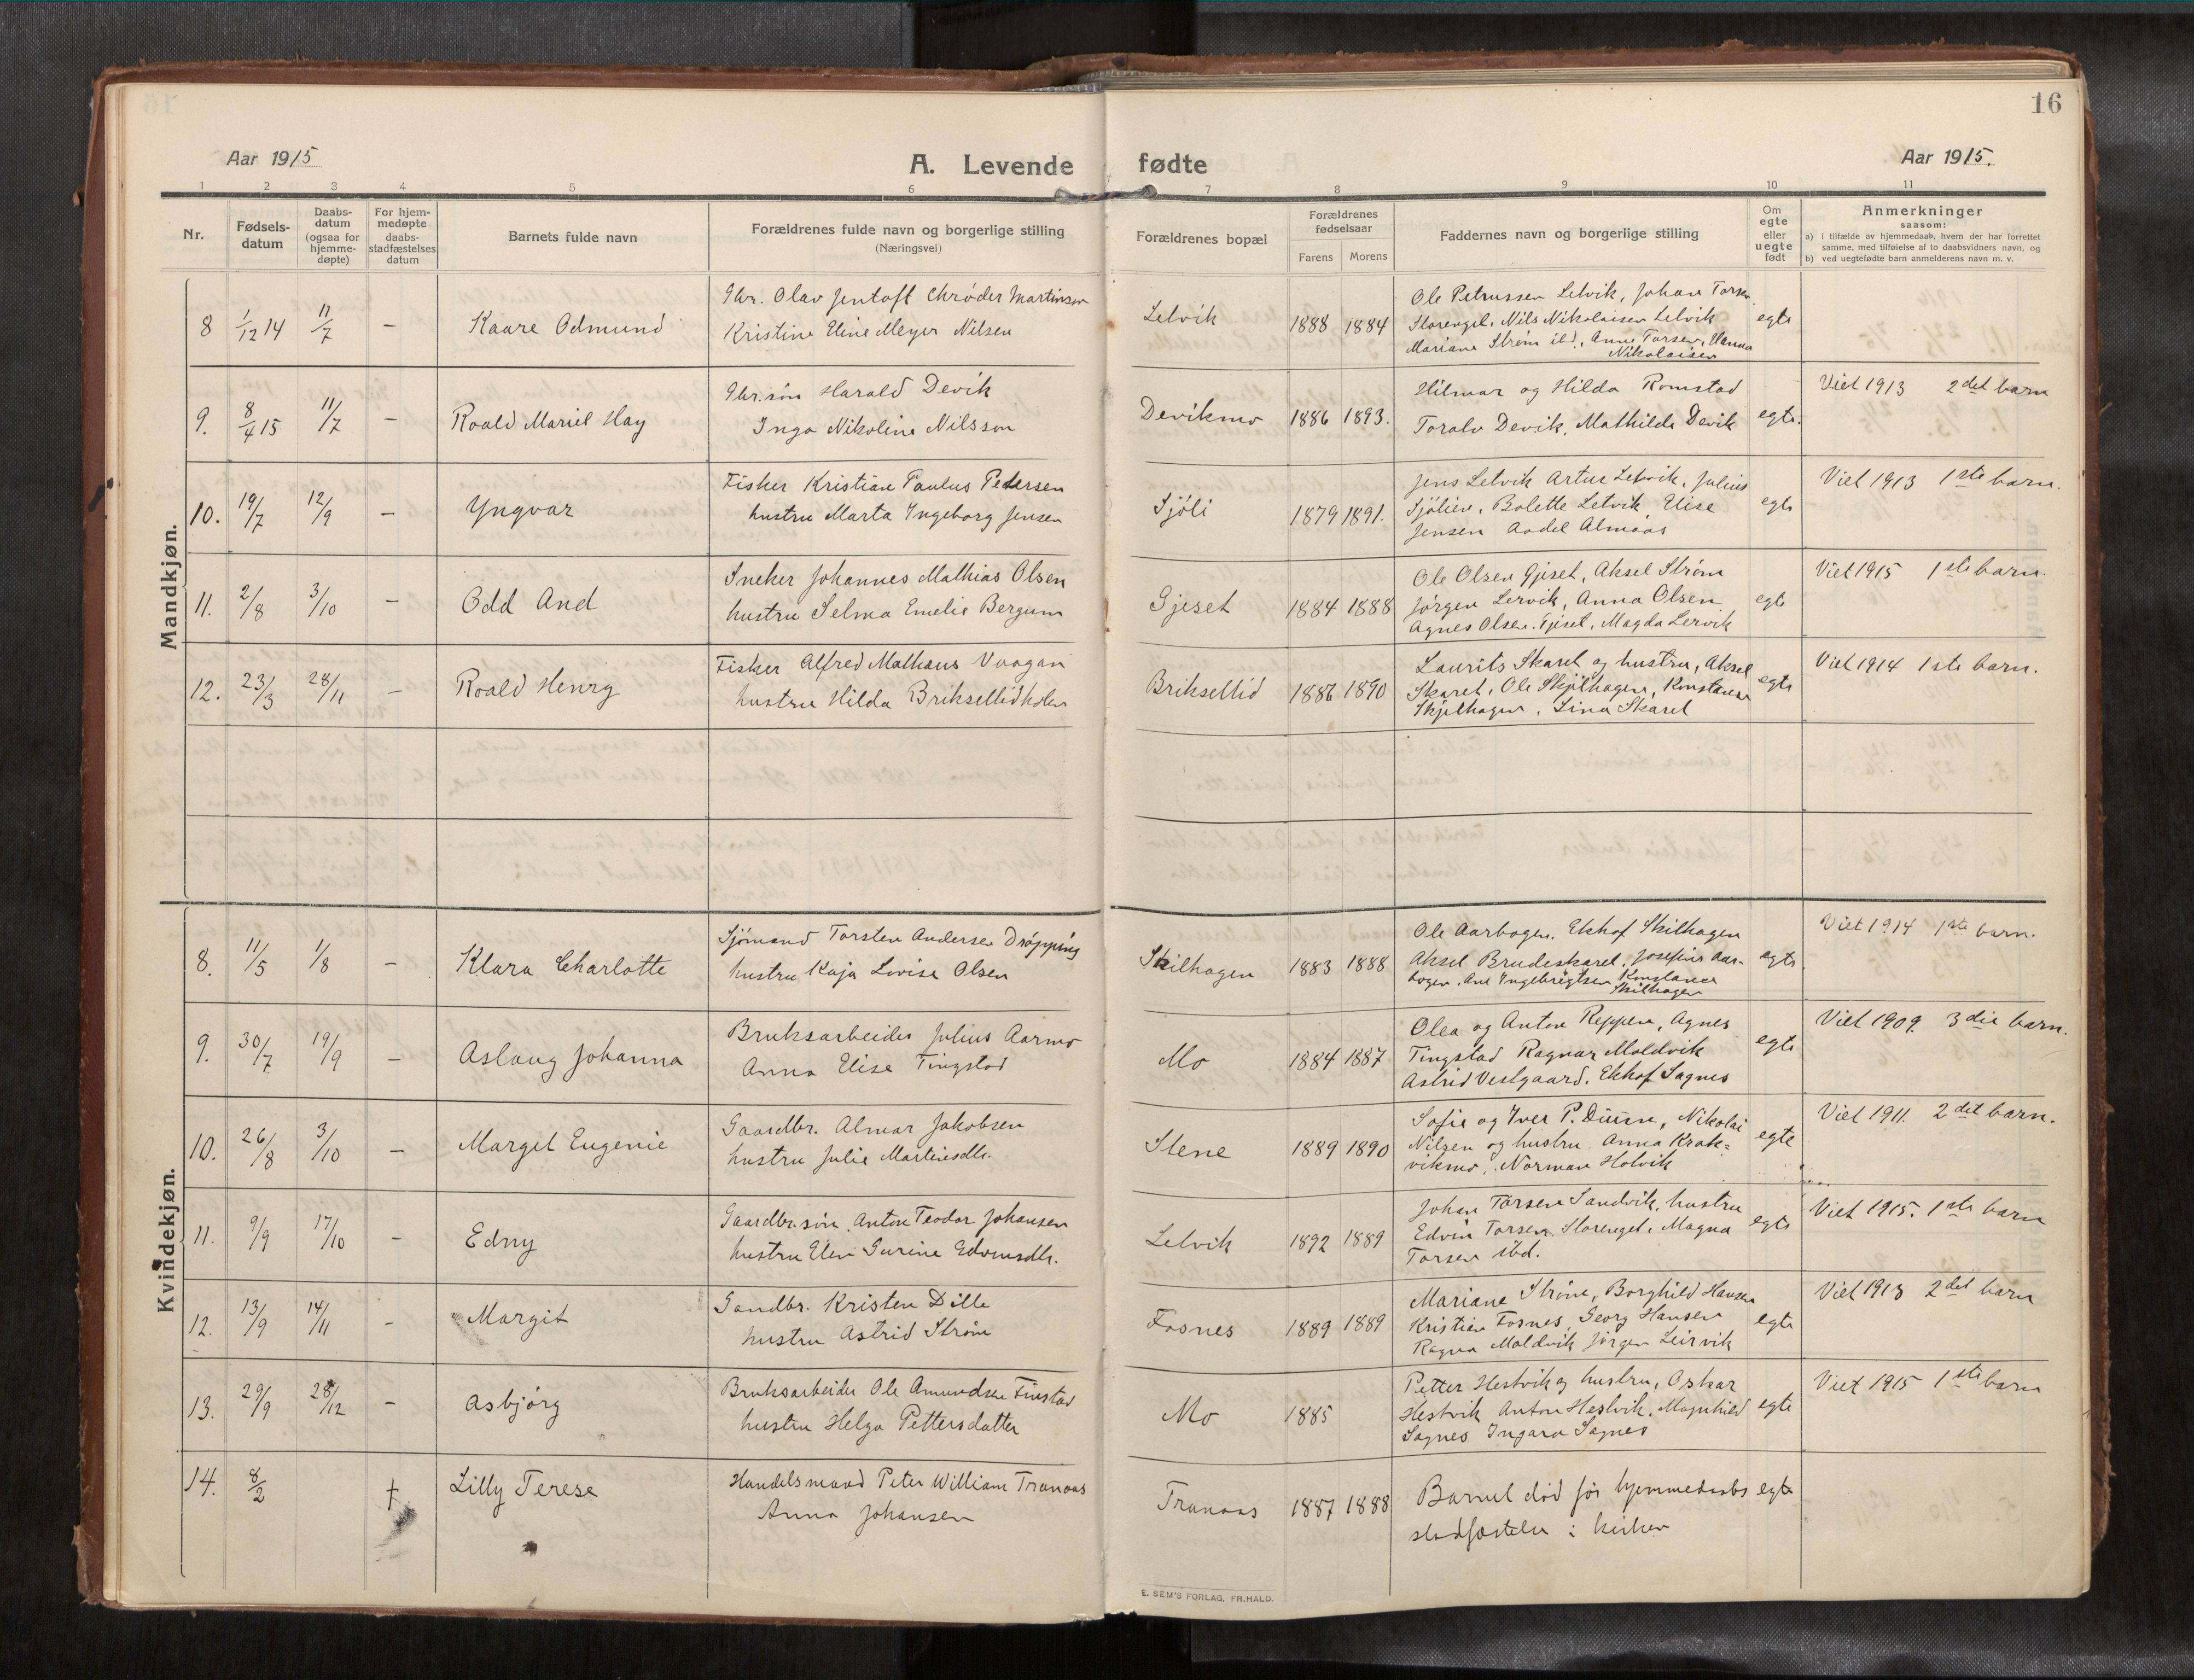 16
Aar 1915
A. Levende fødte
Aar 1915.
1 2 3 4 5 6 7 8 9 10 11
Nr.
Fødsels-
datum
Daabs-
datum
(ogsaa for
hjemme-
døpte)
For hjem-
medøpte
daabs-
stadfæstelses
datum
Barnets fulde navn
Forældrenes fulde navn og borgerlige stilling
(Næringsvei)
Forældrenes bopæl
Forældrenes
fødselsaar
Farens Morens
Faddernes navn og borgerlige stilling
Om
egte
eller
uegte
født
Anmerkninger
saasom:
a) i tilfælde av hjemmedaab, hvem der har forrettet
samme, med tilføielse af to daabsvidners navn, og
b) ved uegtefødte barn anmelderens navn m. v.
Mandkjøn.
8 1/12 14 11/7 – Kaare Odmund
Gbr. Olav Jentoft Chrøder Martinsen
Kristine Eline Meyer Nilsen
Letvik 1888 1884
Ole Petrussen Letvik, Johan Torsen
Storengel, Nils Nikolaisen Letvik
Mariane Strøm ibd., Anne Torsen, Hanna
Nikolaisen
egte
9. 8/4 15 11/7 – Roald Mariel Hay
Gbr.søn Harald Devik
Inga Nikoline Nilsson
Devikmo 1886 1893.
Hilmar og Hilda Romstad
Toralv Devik, Mathilde Devik
egte.
Viet 1913 2det barn
10. 19/7 12/9 – Yngvar
Fisker Kristian Paulus Petersen
hustru Marta Ingeborg Jensen
Sjöli 1879 1891.
Jens Letvik Artur Letvik, Julius
Sjölien, Bolette Letvik, Elise
Jensen Aadel Almaas
egte
Viet 1913 1ste barn.
11. 2/8 3/10 – Odd And
Sneker Johannes Mathias Olsen
hustru Selma Emelie Bergum
Gjeset 1884 1888
Ole Olsen Gjeset, Aksel Strøm
Jørgen Lervik, Anna Olsen
Agnes Olsen Gjeset, Magda Lervik
egte
Viet 1915 1ste barn.
12. 23/3 28/11 – Roald Henry
Fisker Alfred Mathæus Vaagan
hustru Hilda Briksellidholm
Briksellid 1886 1890
Laurits Skaret og hustru, Aksel
Skaret, Ole Skjelhagen, Konstanse
Skjelhagen, Lina Skaret
egte
Viet 1914 1ste barn.
Kvindekjøn.
8. 11/5 1/8 – Klara Charlotte
Sjømand Torsten Andersen Dröpping
hustru Kaja Lovise Olsen
Skilhagen 1883 1888
Ole Aarbogen, Ekhof Skilhagen
Aksel Brudeskaret, Josefine Aar-
bogen, Ane Ingebrigtsen Konstanse
Skilhagen
egte
Viet 1914 1ste barn.
9. 30/7 19/9 – Aslaug Johanna
Bruksarbeider Julius Aarmo
Anna Elise Tingstad
Mo 1884 1887
Olea og Anton Reppen, Agnes
Tingstad Ragnar Moldvik
Astrid Vestgaard. Ekhof Sagnes
egte
Viet 1909. 3die barn.
10. 26/8 3/10 – Margit Eugenie
Gaardbr. Almar Jakobsen
hustru Julie Martinsdtr.
Stene 1889 1890
Sofie og Iver P. Duun, Nikolai
Nilsen og hustru Anna Krak=
vikmo, Norman Holvik
egte
Viet 1911. 2det barn.
11. 9/9 17/10 – Edny
Gaardbr.søn Anton Teodor Johansen
hustru Elen Gurine Edvinsdtr.
Letvik 1892 1889
Johan Torsen Sandvik, hustru
Edvin Torsen Storengel, Magna
Torsen ibd.
egte
Viet 1915. 1ste barn
12. 13/9 14/11 – Margit
Gaardbr. Kristen Dille
hustru Astrid Strøm
Fosnes 1889 1889
Mariane Strøm, Borghild Hansen
Kristian Fosnes, Georg Hansen
Ragna Moldvik Jørgen Leirvik
egte
Viet 1913 2det barn
13. 29/9 28/12 – Asbjörg
Bruksarbeider Ole Amundsen Finstad
hustru Helga Pettersdatter
Mo 1885
Petter Hestvik og hustru, Oskar
Hestvik Anton Hestvik, Magnhild
Sagnes Ingara Sagnes
egte
Viet 1915 1ste barn
14. 8/2 † Lilly Terese
Handelsmand Peter William Tranaas
Anna Johansen
Tranaas 1887 1888
Barnet død før hjemmedaabs
stadfæstelse i kirken
egte
E. SEM'S FORLAG, FR.HALD.